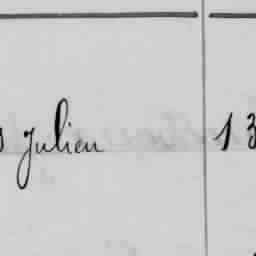 julien 13